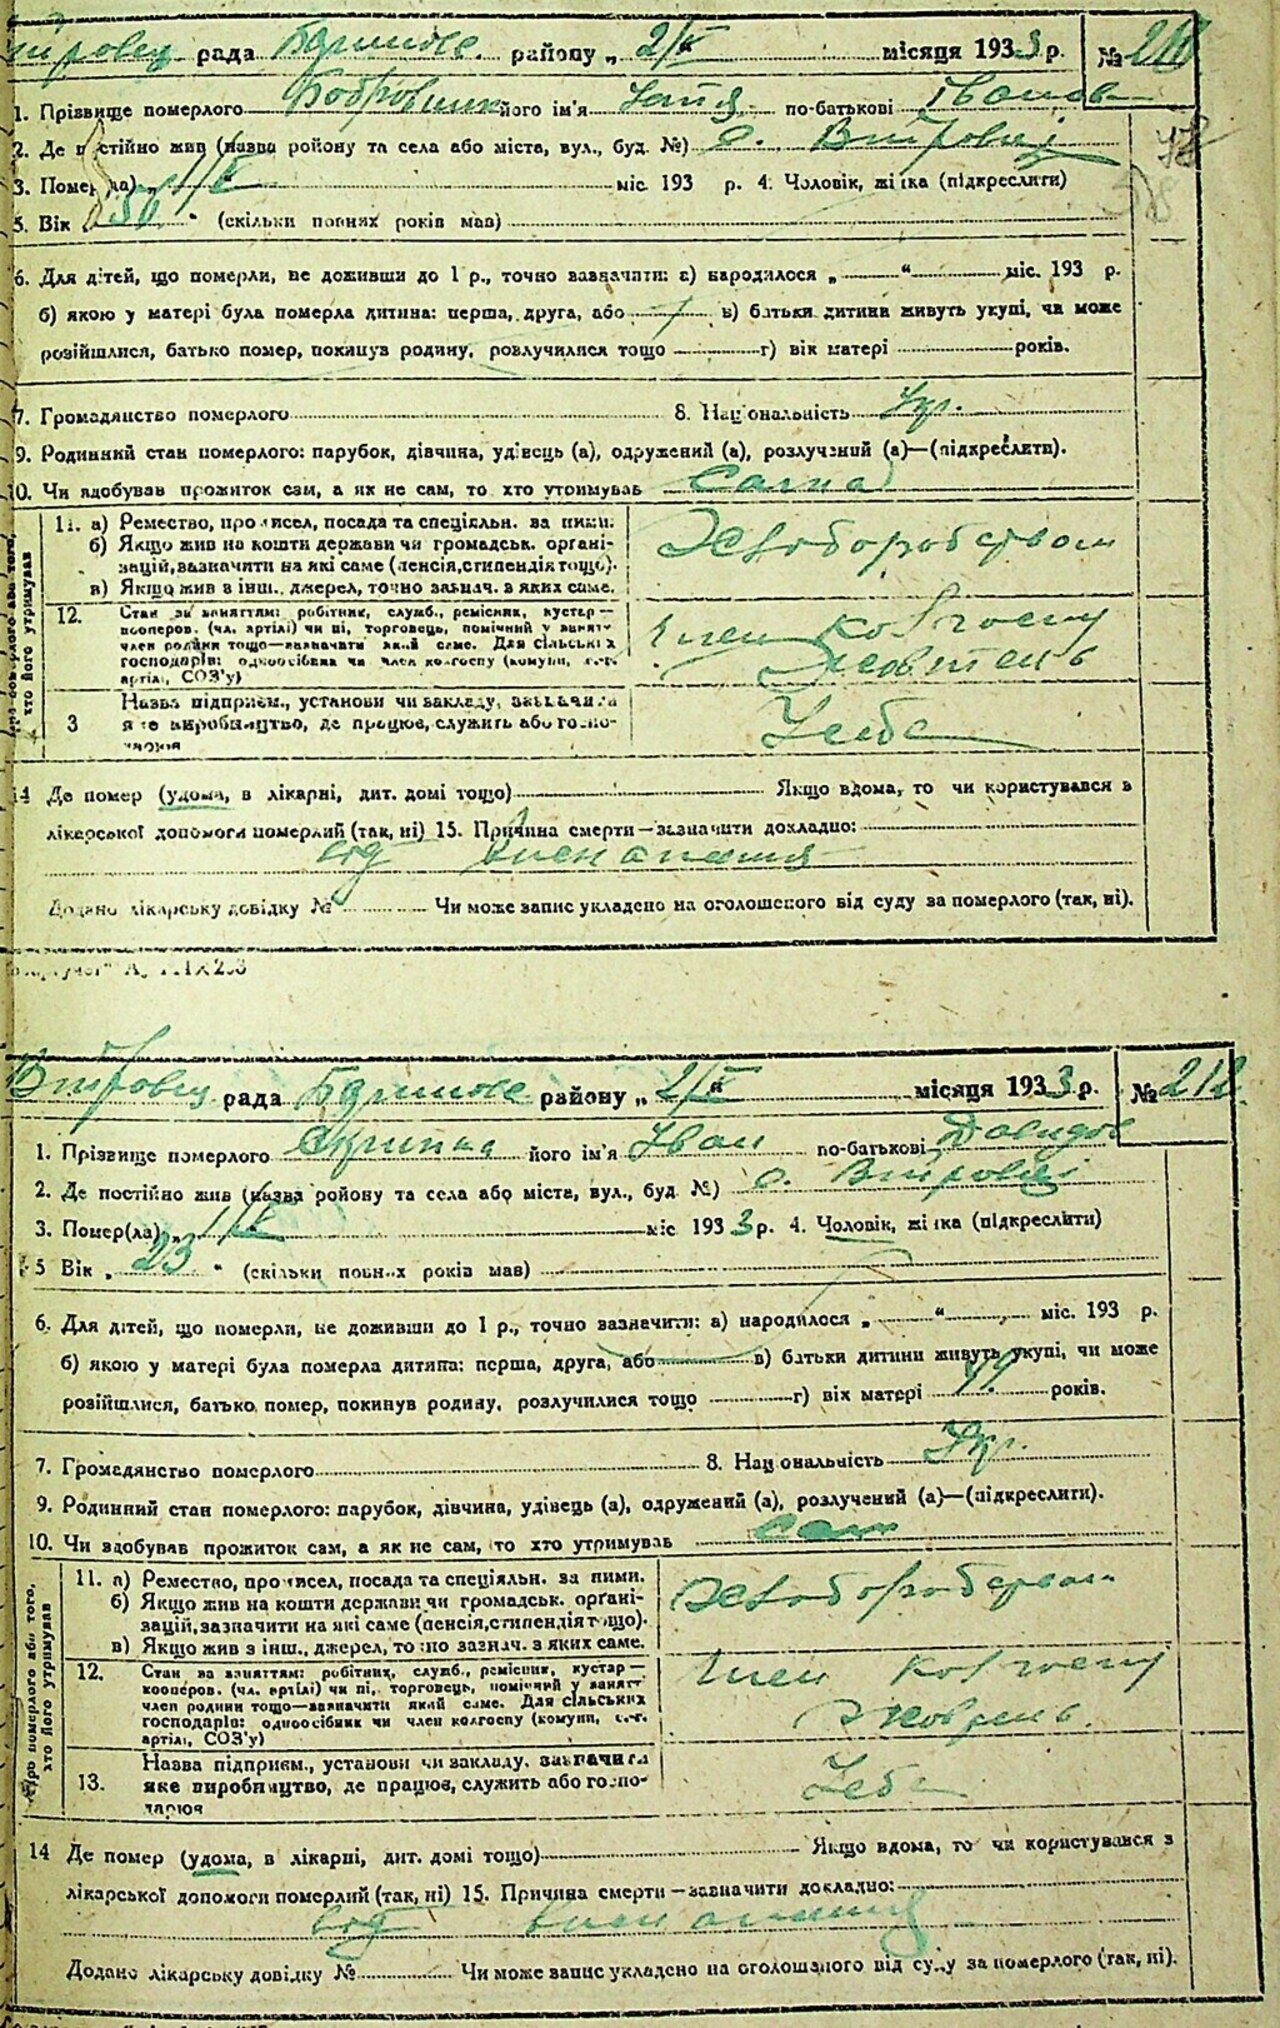 рада Баришів. району „ 2/V “ місяця 1933 р. №
1. Прізвище померлого Бобровник його ім'я по-батькові Іванов
2. Де постійно жив (назва ройону та села або міста, вул., буд. №) с. Вітровці
3. Помер(ла) „ 1/V “ міс. 193 р. 4. Чоловік, жінка (підкреслити)
5. Вік “ (скільки повних років мав)
6. Для дітей, що померли, не доживши до 1 р., точно зазначити: а) народилося „ “ міс. 193 р.
б) якою у матері була померла дитина: перша, друга, або в) батьки дитини живуть укупі, чи може
розійшлися, батько помер, покинув родину, розлучилися тощо г) вік матері років.
7. Громадянство померлого 8. Національність Укр.
9. Родинний стан померлого: парубок, дівчина, удівець (а), одружений (а), розлучений (а)—(підкреслити).
10. Чи здобував прожиток сам, а як не сам, то хто утримував Сама
кто його утримував
11. а) Ремество, промисел, посада та спеціяльн. за ними.
б) Якщо жив на кошти держави чи громадськ. органі-
зацій, зазначити на які саме (пенсія, стипендія тощо).
в) Якщо жив з інш., джерел, точно зазнач. в яких саме.
Хліборобством
12. Стан за заняттям: робітник, служб., ремісник, кустар—
кооперов. (чл. артілі) чи ні, торговець, помічний у занятт
член родини тощо—зазначати який саме. Для сільських
господарів: одноосібник чи член колгоспу (комуни, с.-г.
артілі, СОЗ'у)
Член колгоспу
Жовтень
3 Назва підприєм., установи чи закладу, зазначити
яке виробництво, де працює, служить або госпо-
дарює
У себе
14 Де помер (удома, в лікарні, дит. домі тощо) Якщо вдома, то чи користувався з
лікарської допомоги померлий (так, ні) 15. Причина смерти—зазначити докладно:
від виснаження
Додано лікарську довідку № Чи може запис укладено на оголошеного від суду за померлого (так, ні).
Вітровец рада Баришів. району „ 2/V “ місяця 1933 р. № 212
1. Прізвище померлого Скрипка його ім'я Іван по-батькові Давидов
2. Де постійно жив (назва ройону та села або міста, вул., буд. №) с. Вітровці
3. Помер(ла) „ 1/V “ міс 1933 р. 4. Чоловік, жінка (підкреслити)
5 Вік „ 23 “ (скільки повних років мав)
6. Для дітей, що померли, не доживши до 1 р., точно зазначити: а) народилося „ “ міс. 193 р.
б) якою у матері була померла дитина: перша, друга, або в) батьки дитини живуть укупі, чи може
розійшлися, батько помер, покинув родину, розлучилися тощо г) вік матері років.
7. Громадянство померлого 8. Національність Укр.
9. Родинний стан померлого: парубок, дівчина, удівець (а), одружений (а), розлучений (а)—(підкреслити).
10. Чи здобував прожиток сам, а як не сам, то хто утримував Сам
померлого або того,
хто його утримував
11. а) Ремество, промисел, посада та спеціяльн. за ними.
б) Якщо жив на кошти держави чи громадськ. органі-
зацій, зазначити на які саме (пенсія, стипендія тощо).
в) Якщо жив з інш., джерел, точно зазнач. з яких саме.
Хліборобством
12. Стан за заняттям: робітник, служб., ремісник, кустар—
кооперов. (чл. артілі) чи ні, торговець, помічний у занятт
член родини тощо—зазначати який саме. Для сільських
господарів: одноосібник чи член колгоспу (комуни, с.-г.
артілі, СОЗ'у)
Член колгоспу
Жовтень.
13. Назва підприєм., установи чи закладу, зазначити
яке виробництво, де працює, служить або госпо-
дарює
У себе
14 Де помер (удома, в лікарні, дит. домі тощо) Якщо вдома, то чи користувався з
лікарської допомоги померлий (так, ні) 15. Причина смерти—зазначити докладно:
від виснаження
Додано лікарську довідку № Чи може запис укладено на оголошеного від суду за померлого (так, ні).